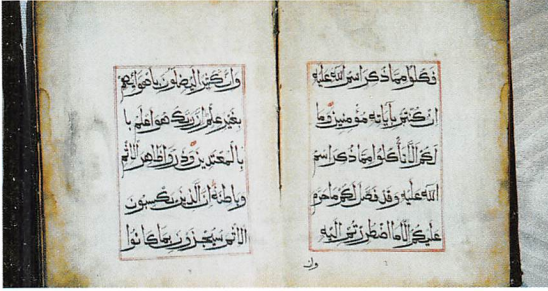 فكلوا مما ذكر اسم الله عليه
ان كنتم بآياته مؤمنين وما
لكم الا تأكلوا مما ذكر اسم
الله عليه وقد فصل لكم ما حرم
عليكم الا ما اضطررتم اليه
وان
وان كثيرا ليضلون باهوائهم
بغير علم ان ربك هو اعلم با
بالمعتدين وذروا ظاهر الاثم
وباطنه ان الذين يكسبون
الاثم سيجزون بما كانوا